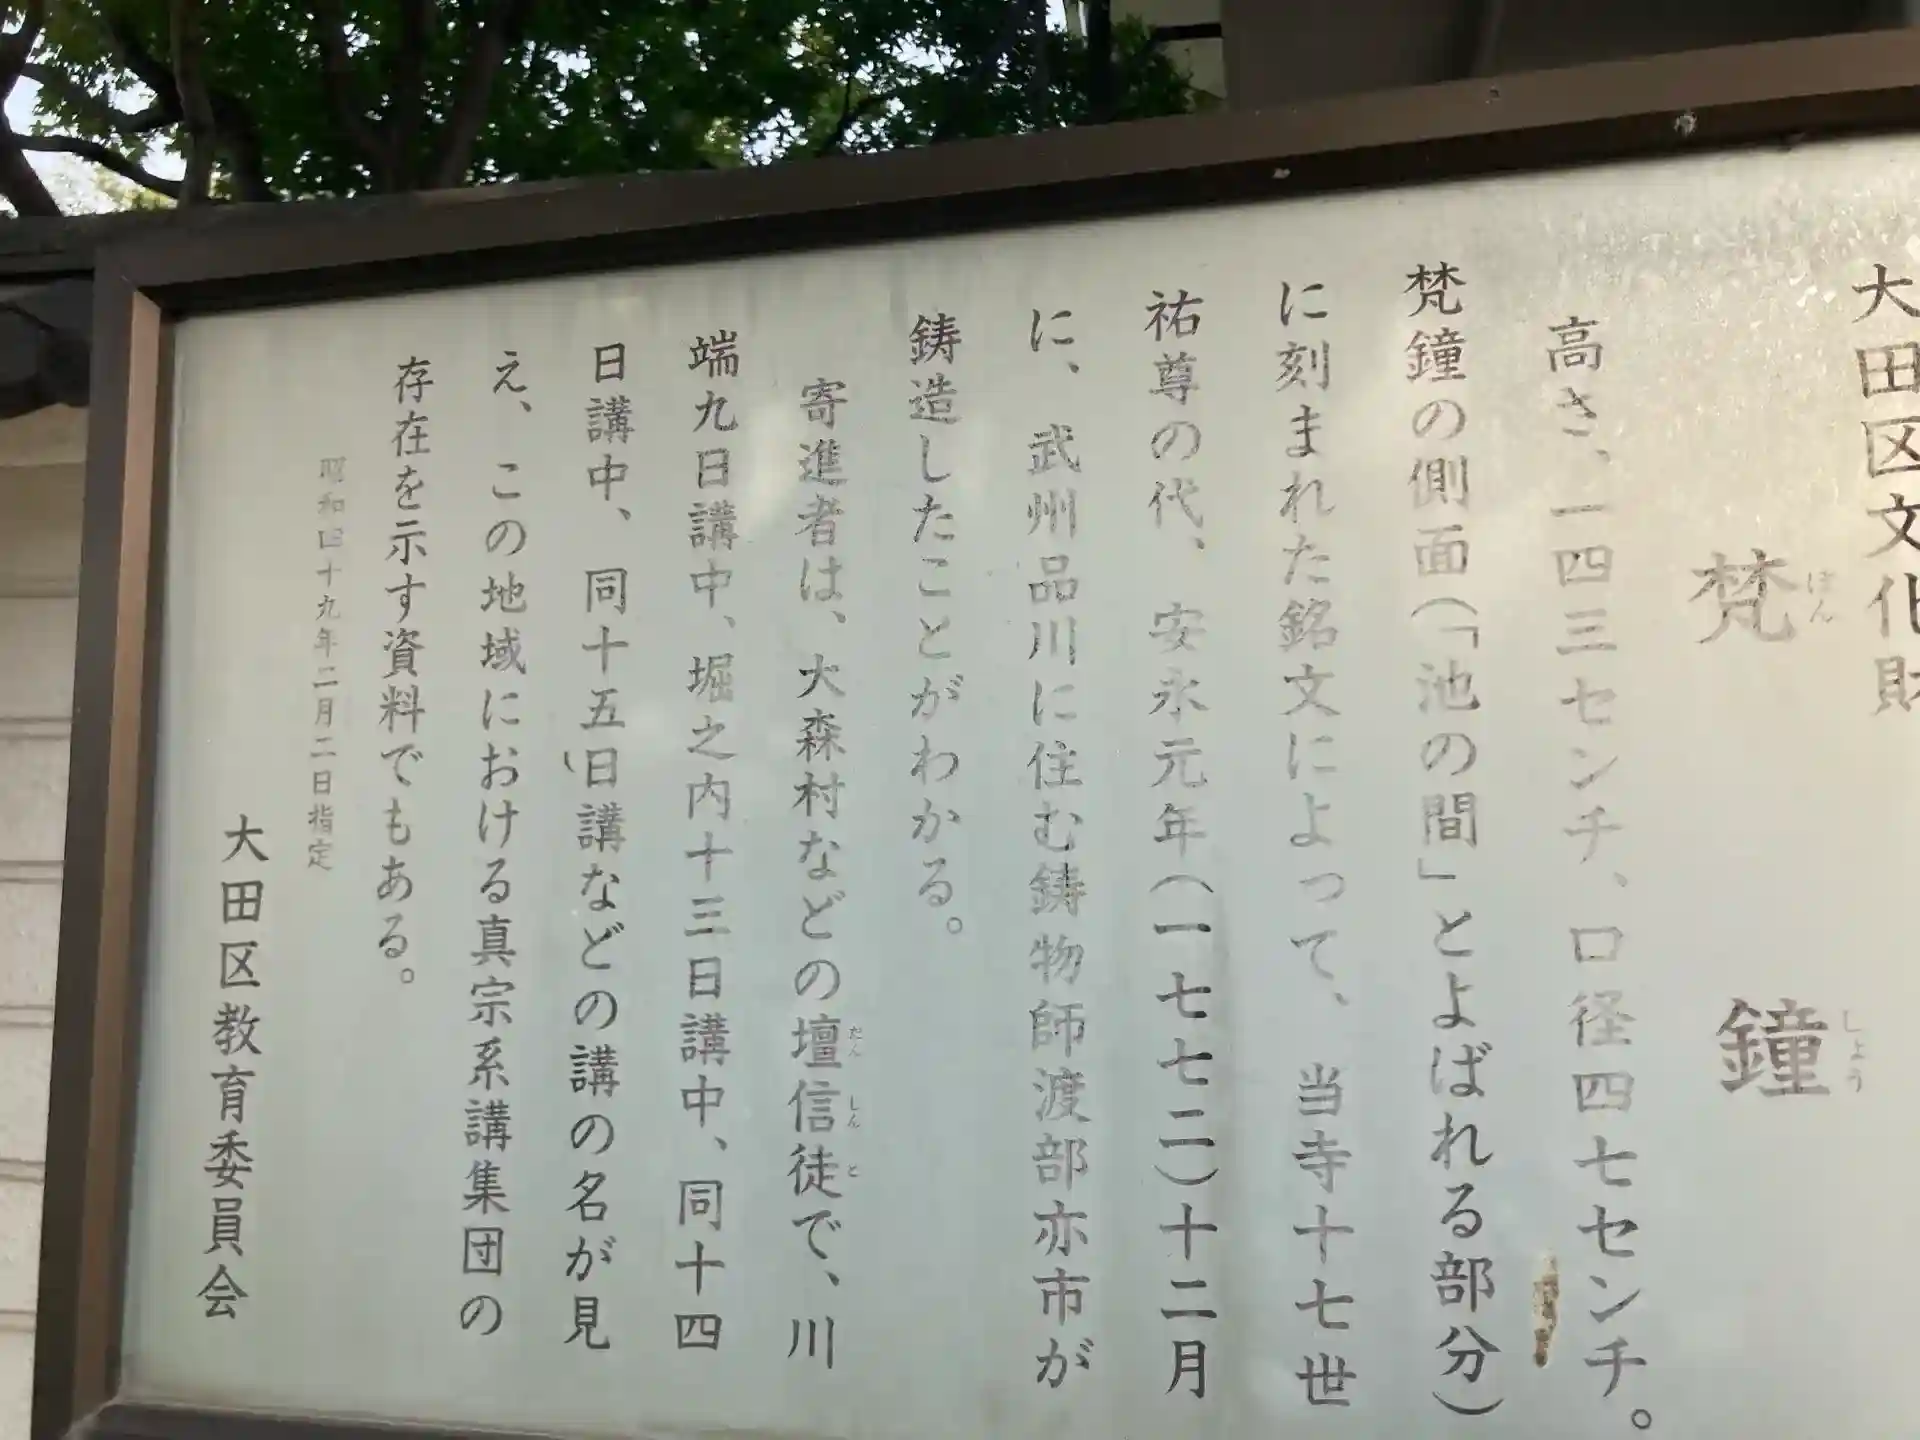 大田区文化財
梵鐘
ぼん
しょう
高さ、一四三センチ、口径四七センチ。
梵鐘の側面(「池の間」とよばれる部分)
に刻まれた銘文によって、当寺十七世
祐尊の代、安永元年(一七七二)十二月
に、武州品川に住む鋳物師渡部亦市が
鋳造したことがわかる。
寄進者は、大森村などの壇信徒で、川
だん しん と
端九日講中、堀之内十三日講中、同十四
日講中、同十五日講などの講の名が見
え、この地域における真宗系講集団の
存在を示す資料でもある。
昭和四十九年二月二日指定
大田区教育委員会